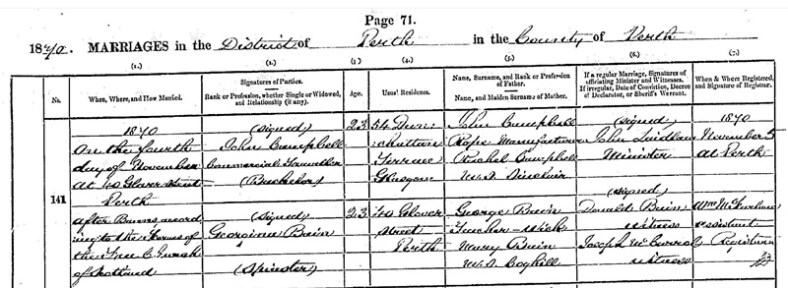 Page 71.
1870. MARRIAGES in the District of Perth in the County of Perth
(1.) (2.) (3.) (4.) (5.) (6.) (7.)
No.
When, Where, and How Married.
Signatures of Parties.
Rank or Profession, whether Single or Widowed, and Relationship (if any).
Age.
Usual Residence.
Name, Surname, and Rank or Profession of Father.
Name, and Maiden Surname of Mother.
If a regular Marriage, Signatures of officiating Minister and Witnesses.
If irregular, Date of Conviction, Decree of Declarator, or Sheriff's Warrant.
When & Where Registered, and Signature of Registrar.
141
1870
On the fourth
day of November
at 40 Glover Street
Perth
after Banns accord
ing to the Forms of
the Free Church
of Scotland
(signed)
John Campbell
Commercial Traveller
(Bachelor)
(signed)
Georgina Bain
(Spinster)
23
23
54
Terrace
Glasgow
40 Glover
Street
Perth
John Campbell
Rope Manufacturer
Rachel Campbell
M.S. Sinclair
George Bain
Teacher - Wick
Mary Bain
M.S. Coghill
(signed)
John Laidlaw
Minister
(signed)
Donald Bain
witness
Joseph
witness
1870
November 5
at Perth
Wm McFarlane
assistant
Registrar